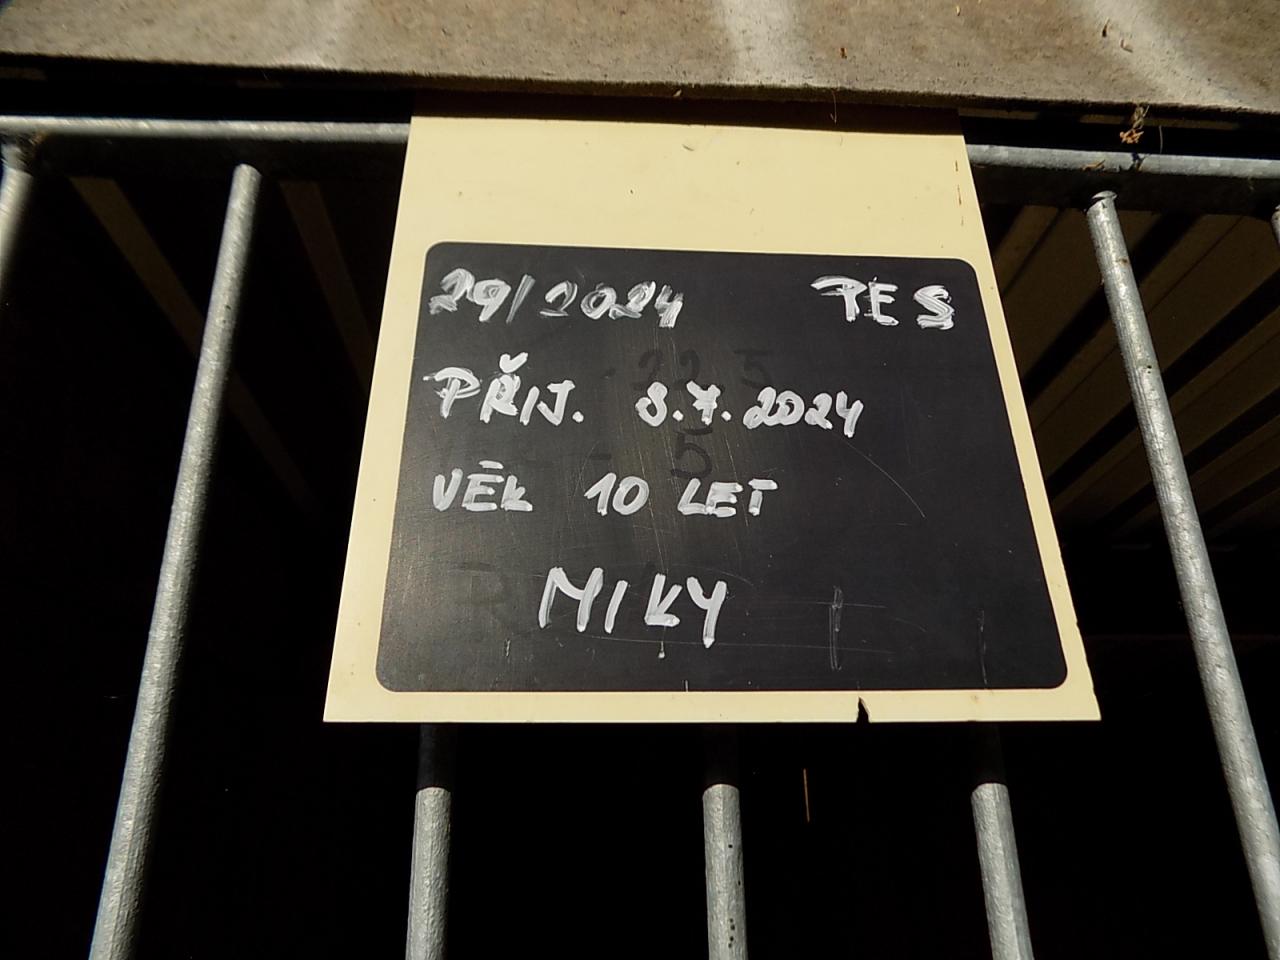 29/2024 PES
PŘIJ. 8.7.2024
VĚK 10 LET
MIKY